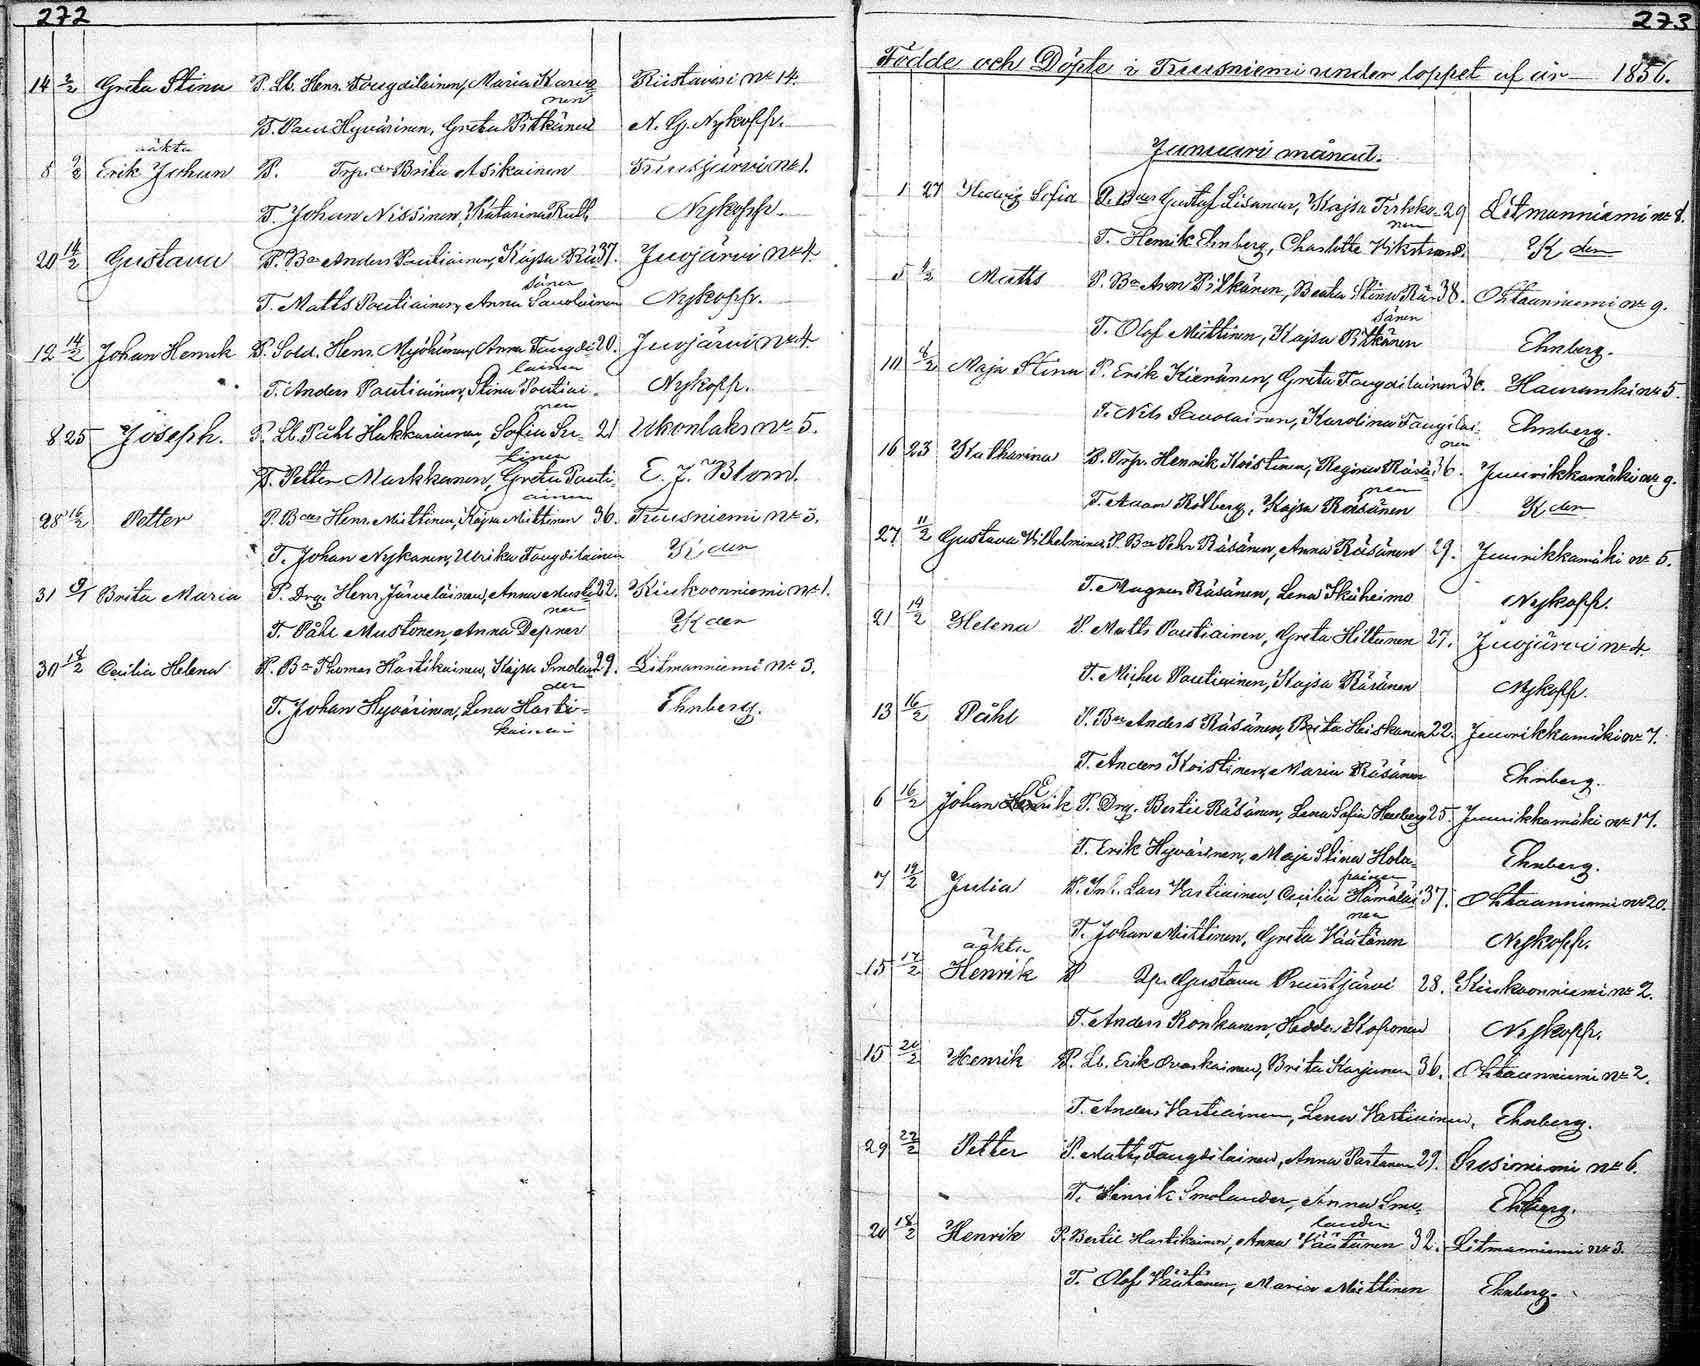 272
14 2/2 Greta Stina P. Lb. Henr. Taugdilainen, Maria Karvo- Riistavesi No 14.
nen
T. Paul Hyvärinen, Greta Pitkänen N. G. Nykopp.
oäkta
8 2/2 Erik Johan P. Brita Asikainen Tuusjärvi No 1.
T. Johan Nissinen, Katarina Ruth Nykopp.
20 14/2 Gustava P. Bo Anders Pautiainen, Kajsa Rä- 37. Juojärvi No 4.
sänen
T. Matts Pautiainen, Anna Savolainen Nykopp.
12 14/2 Johan Henrik P. Sold. Henr. Myöhänen, Anna Taugdi- 20. Juojärvi No 4.
lainen
T. Anders Pautiainen, Stina Pautiai- Nykopp.
nen
8 25 Joseph. P. Lb. Påhl Hakkarainen, Sofia 21 Ukonlaks No 5.
T. Petter Markkanen, Greta Pauti- E. J. Blom.
ainen
28 16/2 Petter P. Bo Henr. Miettinen, Kajsa Miettinen 36. Tuusniemi No 3.
T. Johan Nykänen, Ulrika Taugdilainen K den
31 Brita Maria P. Drg. Henr. Järveläinen, Anna Musto- 22. Kiukoonniemi No 1.
nen
T. Påhl Mustonen, Anna Depner K den
30 Cecilia Helena P. Bo Thomas Hartikainen, Kajsa Smolan- 29. Litmanniemi No 3.
der
T. Johan Hyvärinen, Lena Harti- Ehnberg.
kainen
273
Födde och Döpte i Tuusniemi under loppet af år 1856.
Januari månad.
1 27 Hedvig Sofia P. Gustaf Lisander, Kajsa Tirkko- 29 Litmanniemi No 8.
nen
T. Henrik Ehnberg, Charlotte Vikstrand. K den
5 Matts P. Bo Aron Pitkänen, Beata Stina Rä- 38. Ohtaanniemi No 9.
sänen
T. Olof Miettinen, Kajsa Pitkänen Ehnberg.
10 Maja Stina P. Erik Kieränen, Greta Taugdilainen 36. Hauranki No 5.
T. Nils Savolainen, Karolina Taugdilai- Ehnberg.
nen
16 23 Katharina P. Torp. Henrik Koistinen, Regina Räsä- 36. Juurikkamäki No 9.
nen
T. Adam Rolberg, Kajsa Räsänen K den
27 11/2 Gustava Vilhelmina P. Bo Pehr Räsänen, Anna Räsänen 29. Juurikkamäki No 5.
T. Magnus Räsänen, Lena Nykopp.
21 14/2 Helena P. Matts Pautiainen, Greta Hiltunen 27. Juojärvi No 4.
T. Michel Pautiainen, Kajsa Räsänen Nykopp.
13 16/2 Påhl P. Bo Anders Räsänen, Brita Heiskanen 22. Juurikkamäki No 7.
T. Anders Koistinen, Maria Räsänen Ehnberg.
6 16/2 Johan Erik P. Drg. Bertil Räsänen, Lena Sofia 25. Juurikkamäki No 17.
T. Erik Hyvärinen, Maja Stina Hola- Ehnberg.
painen
7 19/2 Julia P. Inh. Lars Vartiainen, Cecilia Hämäläi- 37. Ohtaanniemi No 20.
nen
T. Johan Miettinen, Greta Väätänen Nykopp.
oäkta
15 17/2 Henrik P Gustava Pruustjärvi 28. Kiukoonniemi No 2.
T. Anders Ronkanen, Hedda Koponen Nykopp.
15 20/2 Henrik P. Lb. Erik Ovaskainen, Brita Karjunen 36. Ohtaanniemi No 2.
T. Anders Vartiainen, Lena Vartiainen, Ehnberg.
29 22/2 Petter P. Matts Taugdilainen, Anna Partanen 29. Susiniemi No 6.
T. Henrik Smolander, Anna Smo- Ehnberg.
lander
20 18/2 Henrik P. Bertil Hartikainen, Anna Väätänen 32. Litmanniemi No 3.
T. Olof Väätänen, Maria Miettinen Ehnberg.